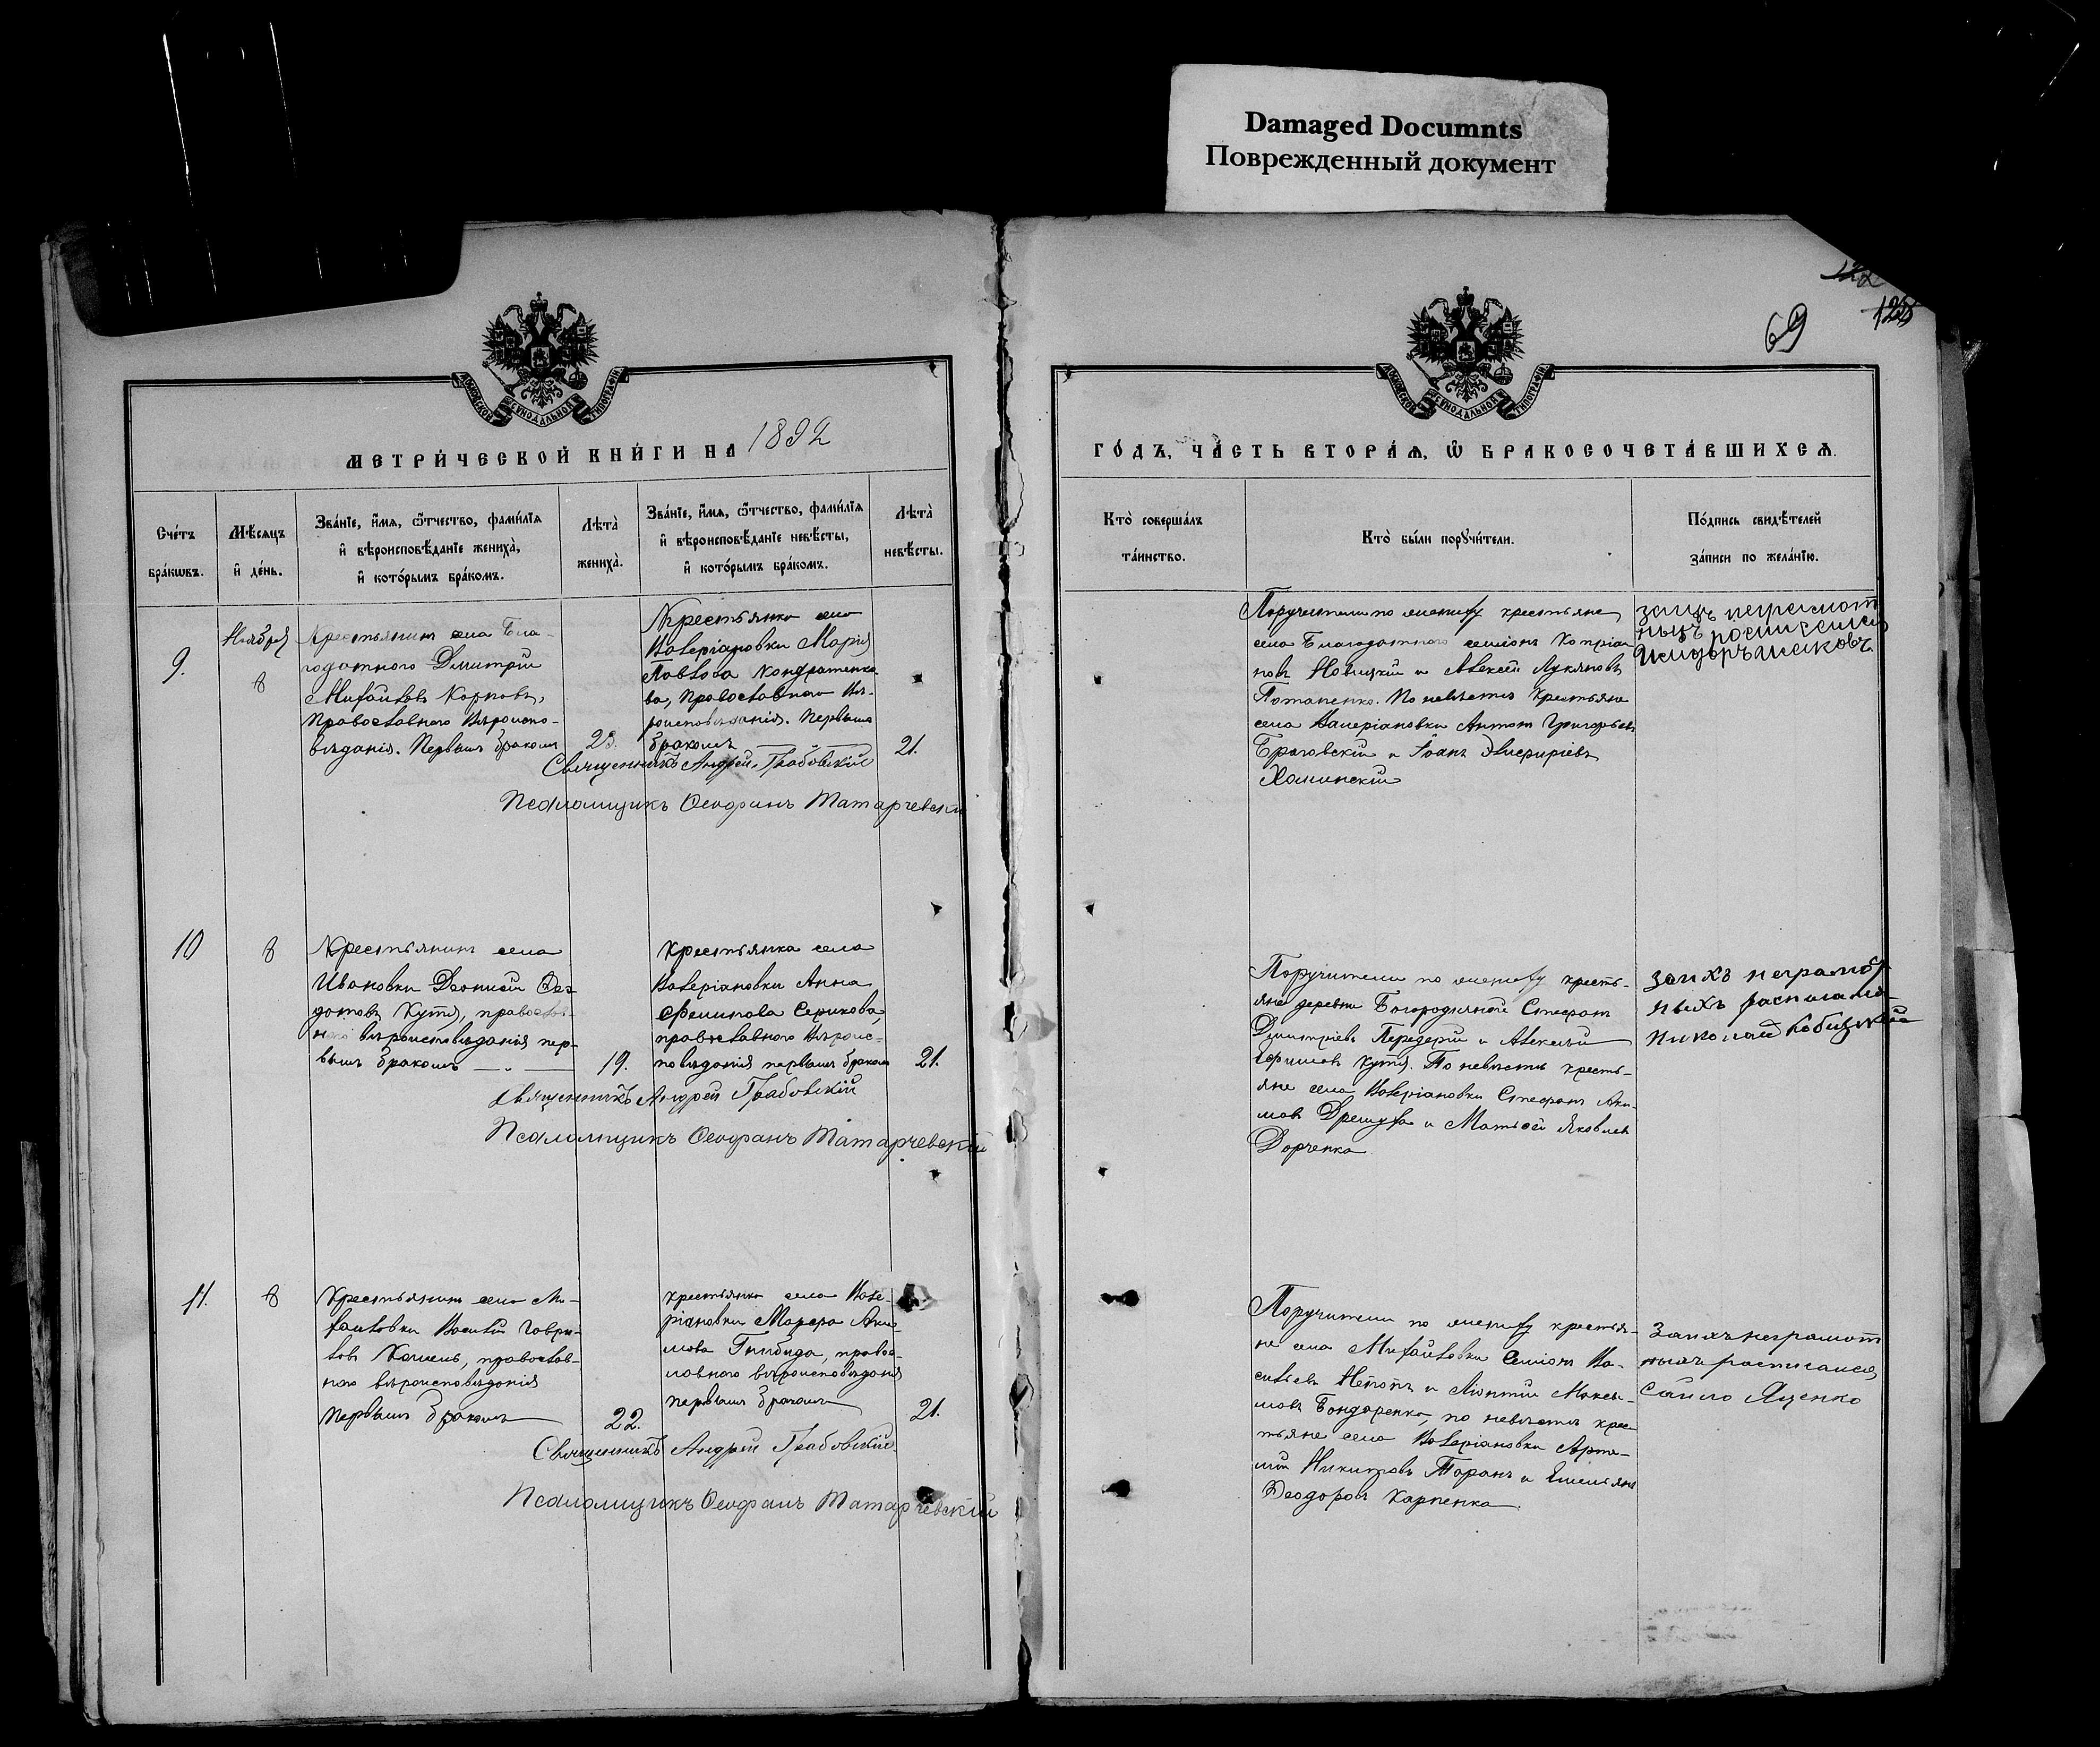 Damaged Documnts
Поврежденный документ
122
69
МОСКОВСКОЙ СѴНОДАЛЬНОЙ ТИПОГРАФІИ
МОСКОВСКОЙ СѴНОДАЛЬНОЙ ТИПОГРАФІИ
МЕТРИ́ЧЕСКОЙ КНИ́ГИ НА 1892
ГО́ДЪ, ЧА́СТЬ ВТОРА́Ѧ, Ѡ҆ БРАКОСОЧЕТА́ВШИХСѦ.
Сче́тъ
бра́кѡвъ.
Мѣ́сѧцъ
и҆ де́нь.
Зва́нїе, и҆́мѧ, ѻ҆́тчество, фами́лїѧ
и҆ вѣроисповѣ́данїе жениха̀,
и҆ кото́рымъ бра́комъ.
Лѣта̀
жениха̀.
Зва́нїе, и҆́мѧ, ѻ҆́тчество, фами́лїѧ
и҆ вѣроисповѣ́данїе невѣ́сты,
и҆ кото́рымъ бра́комъ.
Лѣта̀
невѣ́сты.
Кто̀ соверша́лъ
та́инство.
Кто̀ бы́ли порꙋчи́тели.
По́дпись свидѣ́телей
за́писи по жела́нїю.
9.
Ноября
8
Крестьянинъ села Бла-
годатного Дмитрій
Михайловъ Карповъ,
православного вѣроиспо-
вѣданія. Первымъ бракомъ
23.
Крестьянка села
Валеріановки Марія
Павлова Кондратенко-
ва, православного вѣ-
роисповѣданія. Первымъ
бракомъ
21.
Священникъ Андрей Грабовскій
Псаломщикъ Ѳеофанъ Татарчевскій
Поручители по жениху крестьяне
села Благодатного Семіонъ Капріа
новъ Новицкій и Алексѣй Лукяновъ
Потапенко. По невѣстѣ крестьяне
села Валеріановки Антонъ Григорьевъ
Браговскій и Іоанъ
Хоминскій
неграмот
ныхъ росписался
10
8
Крестьянинъ села
Ивановки Діонисій Ѳео
дотовъ Кутя, православ-
ного вѣроисповѣданія пер-
вымъ бракомъ
19.
Крестьянка села
Валеріановки Анна
Филипова Серикова,
православного вѣроис-
повѣданія первымъ бракомъ
21.
Священникъ Андрей Грабовскій
Псаломщикъ Ѳеофанъ Татарчевскій
Поручители по жениху кресть-
яне деревни Богородичной Стефанъ
Димитріевъ Передерій и Алексѣй
Ефимовъ Кутя. По невѣстѣ кресть-
яне села Валеріановки Стефанъ Аки-
мовъ и Матѳей Яковлевъ
Дорченко
за ихъ неграмот
ныхъ росписался
Николай
11.
8
Крестьянинъ села Ми-
хайловки Василій Гаври-
ловъ Кошель, православ-
ного вѣроисповѣданія
первымъ бракомъ
22.
Крестьянка села Вале-
ріановки Марфа Аки-
мова Гнибида, правос-
лавного вѣроисповѣданія
первымъ бракомъ
21.
Священникъ Андрей Грабовскій.
Псаломщикъ Ѳеофанъ Татарчевскій
Поручители по жениху крестья-
не села Михайловки Семіонъ Ва-
сильевъ и Леонтій Макси-
мовъ Бондаренко, по невѣстѣ крес
тьяне села Валеріановки Арте-
мій Никитовъ Таранъ и Емельянъ
Ѳеодоровъ Карпенко.
За ихъ неграмот
ныхъ росписался
Яценко